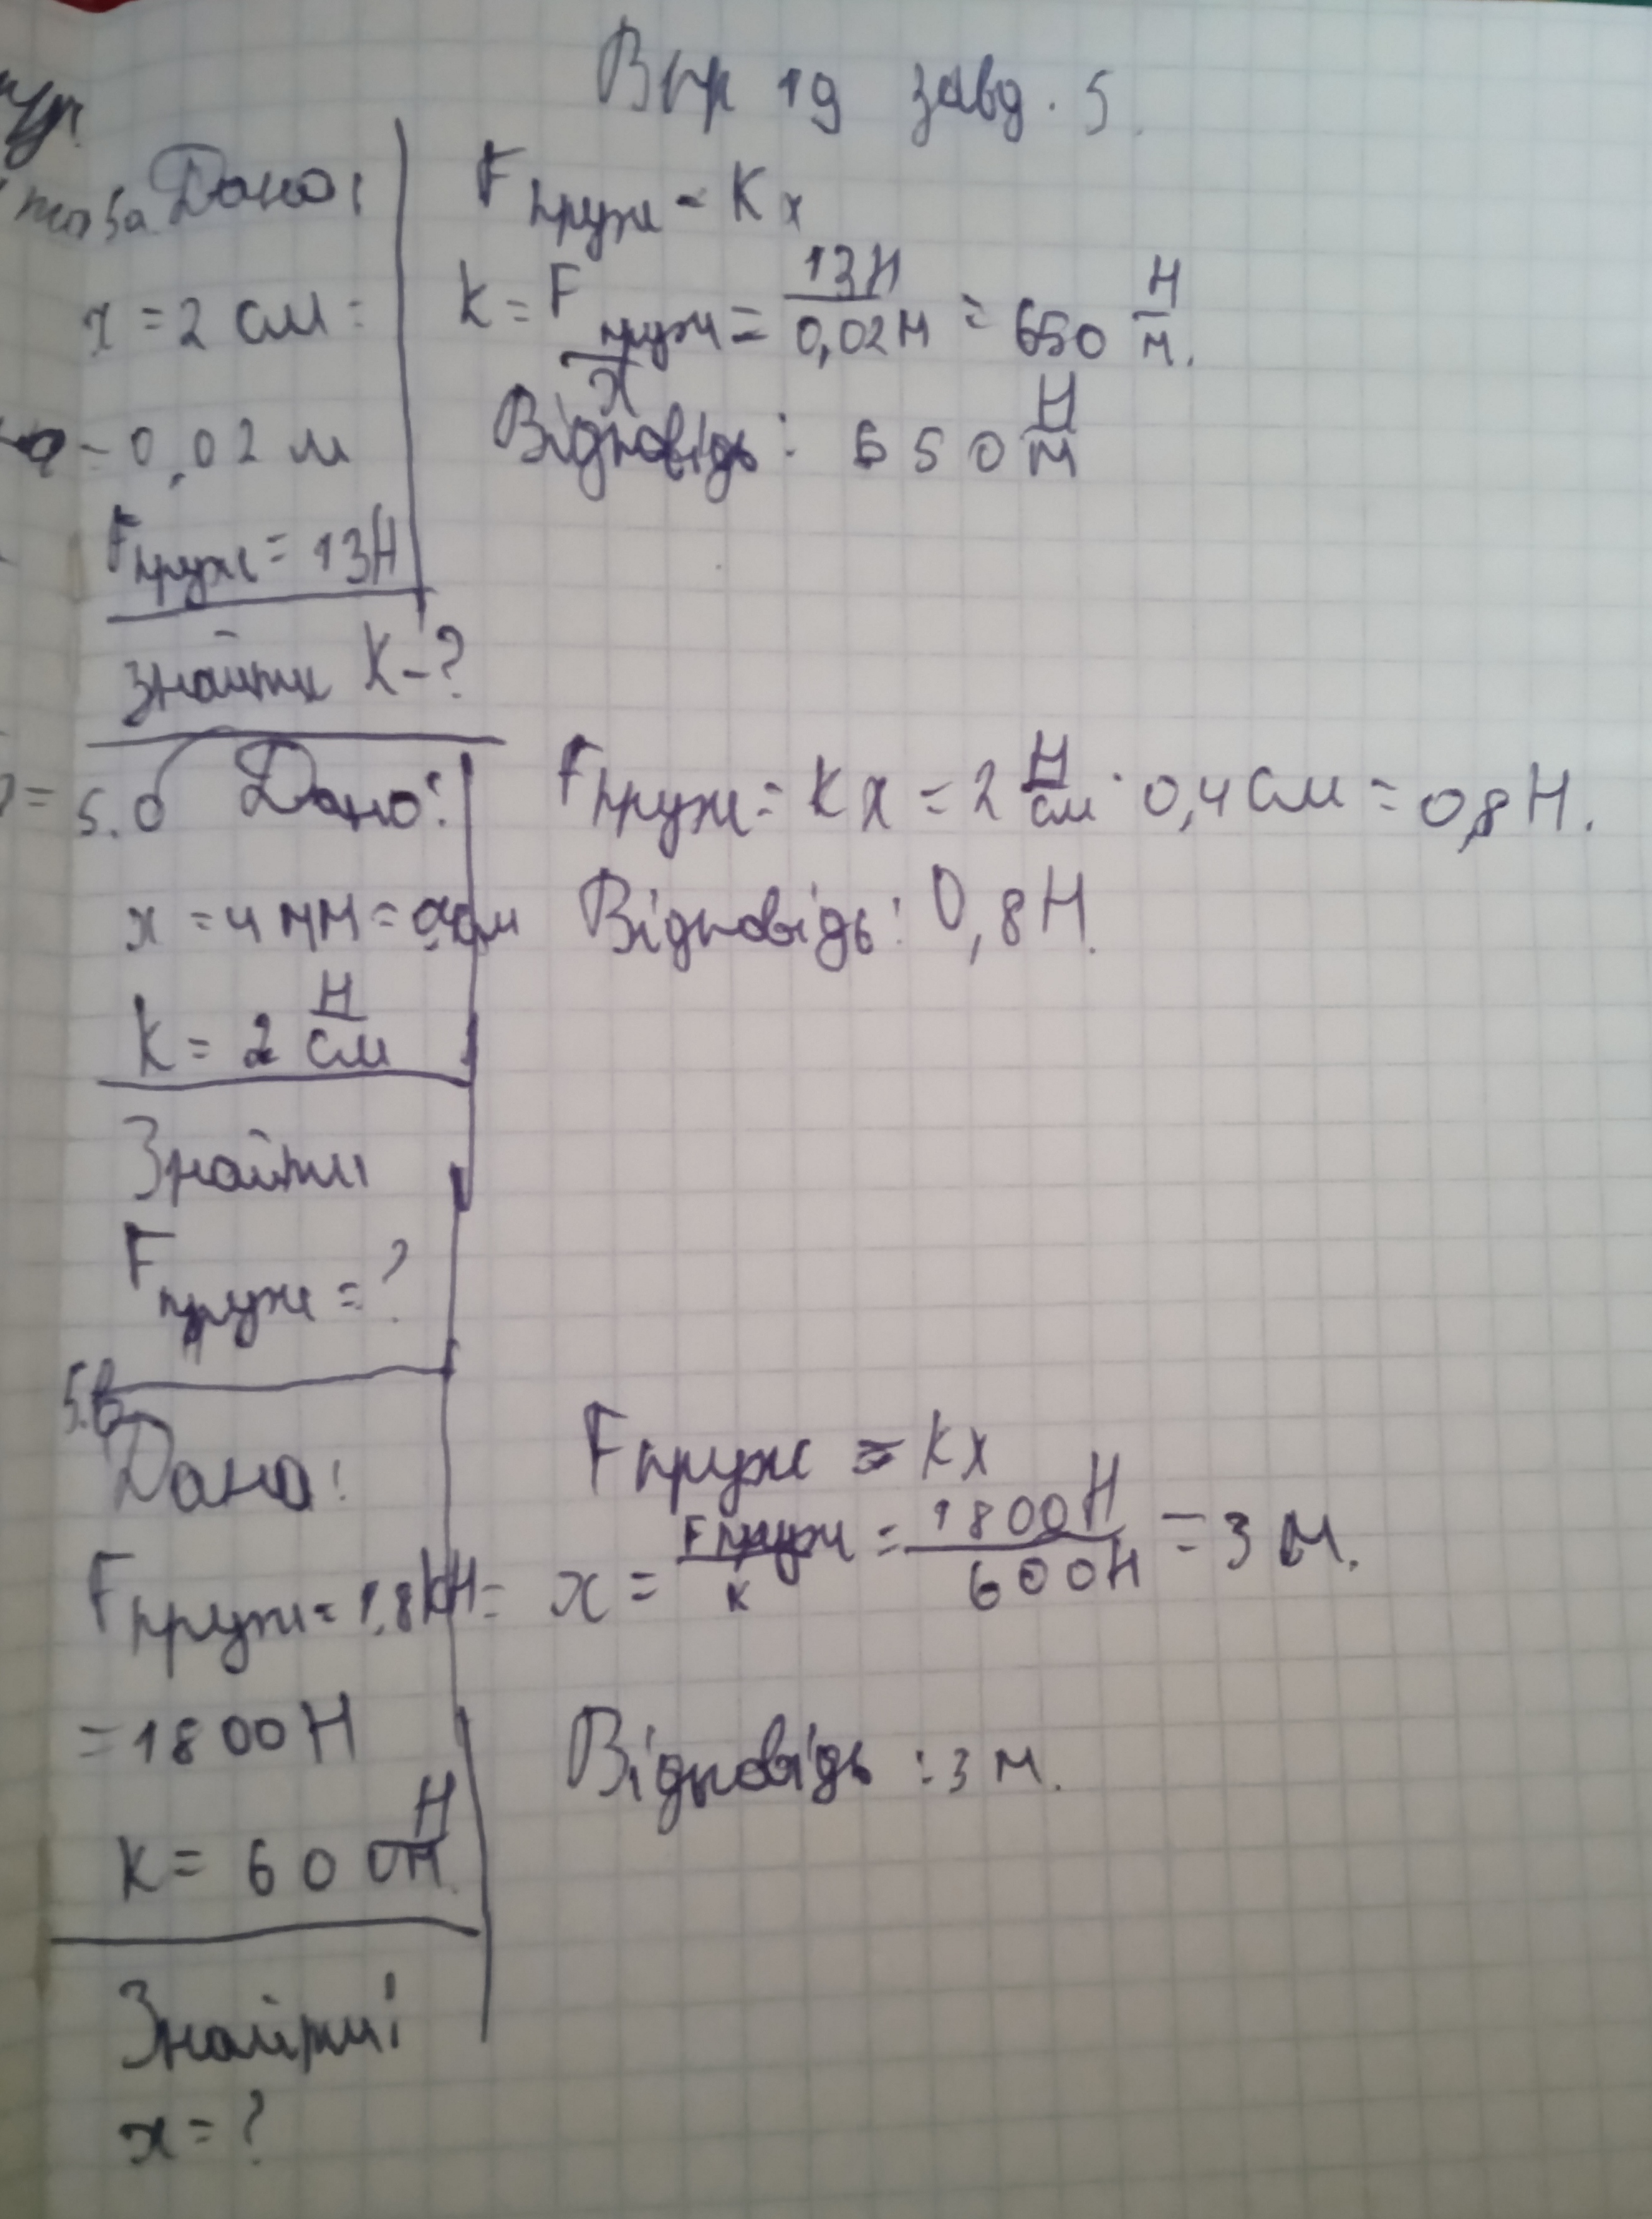 Впр 19 завд. 5.
5а Дано:
x = 2 см =
= 0,02 м
Fпруж = 13Н
Знайти K-?
Fпруж = Kx
k = Fпруж/x = 13Н/0,02м = 650 Н/м.
Відповідь: 650 Н/м
5.б Дано:
x = 4 мм = 0,4см
k = 2 Н/см
Знайти
Fпруж = ?
Fпруж = kx = 2 Н/см · 0,4 см = 0,8 Н.
Відповідь: 0,8 Н.
5.в
Дано:
Fпруж = 1,8кН =
= 1800 Н
k = 600 Н/м
Знайти:
x = ?
Fпруж = kx
x = Fпруж/k = 1800Н/600Н = 3 м.
Відповідь: 3 м.